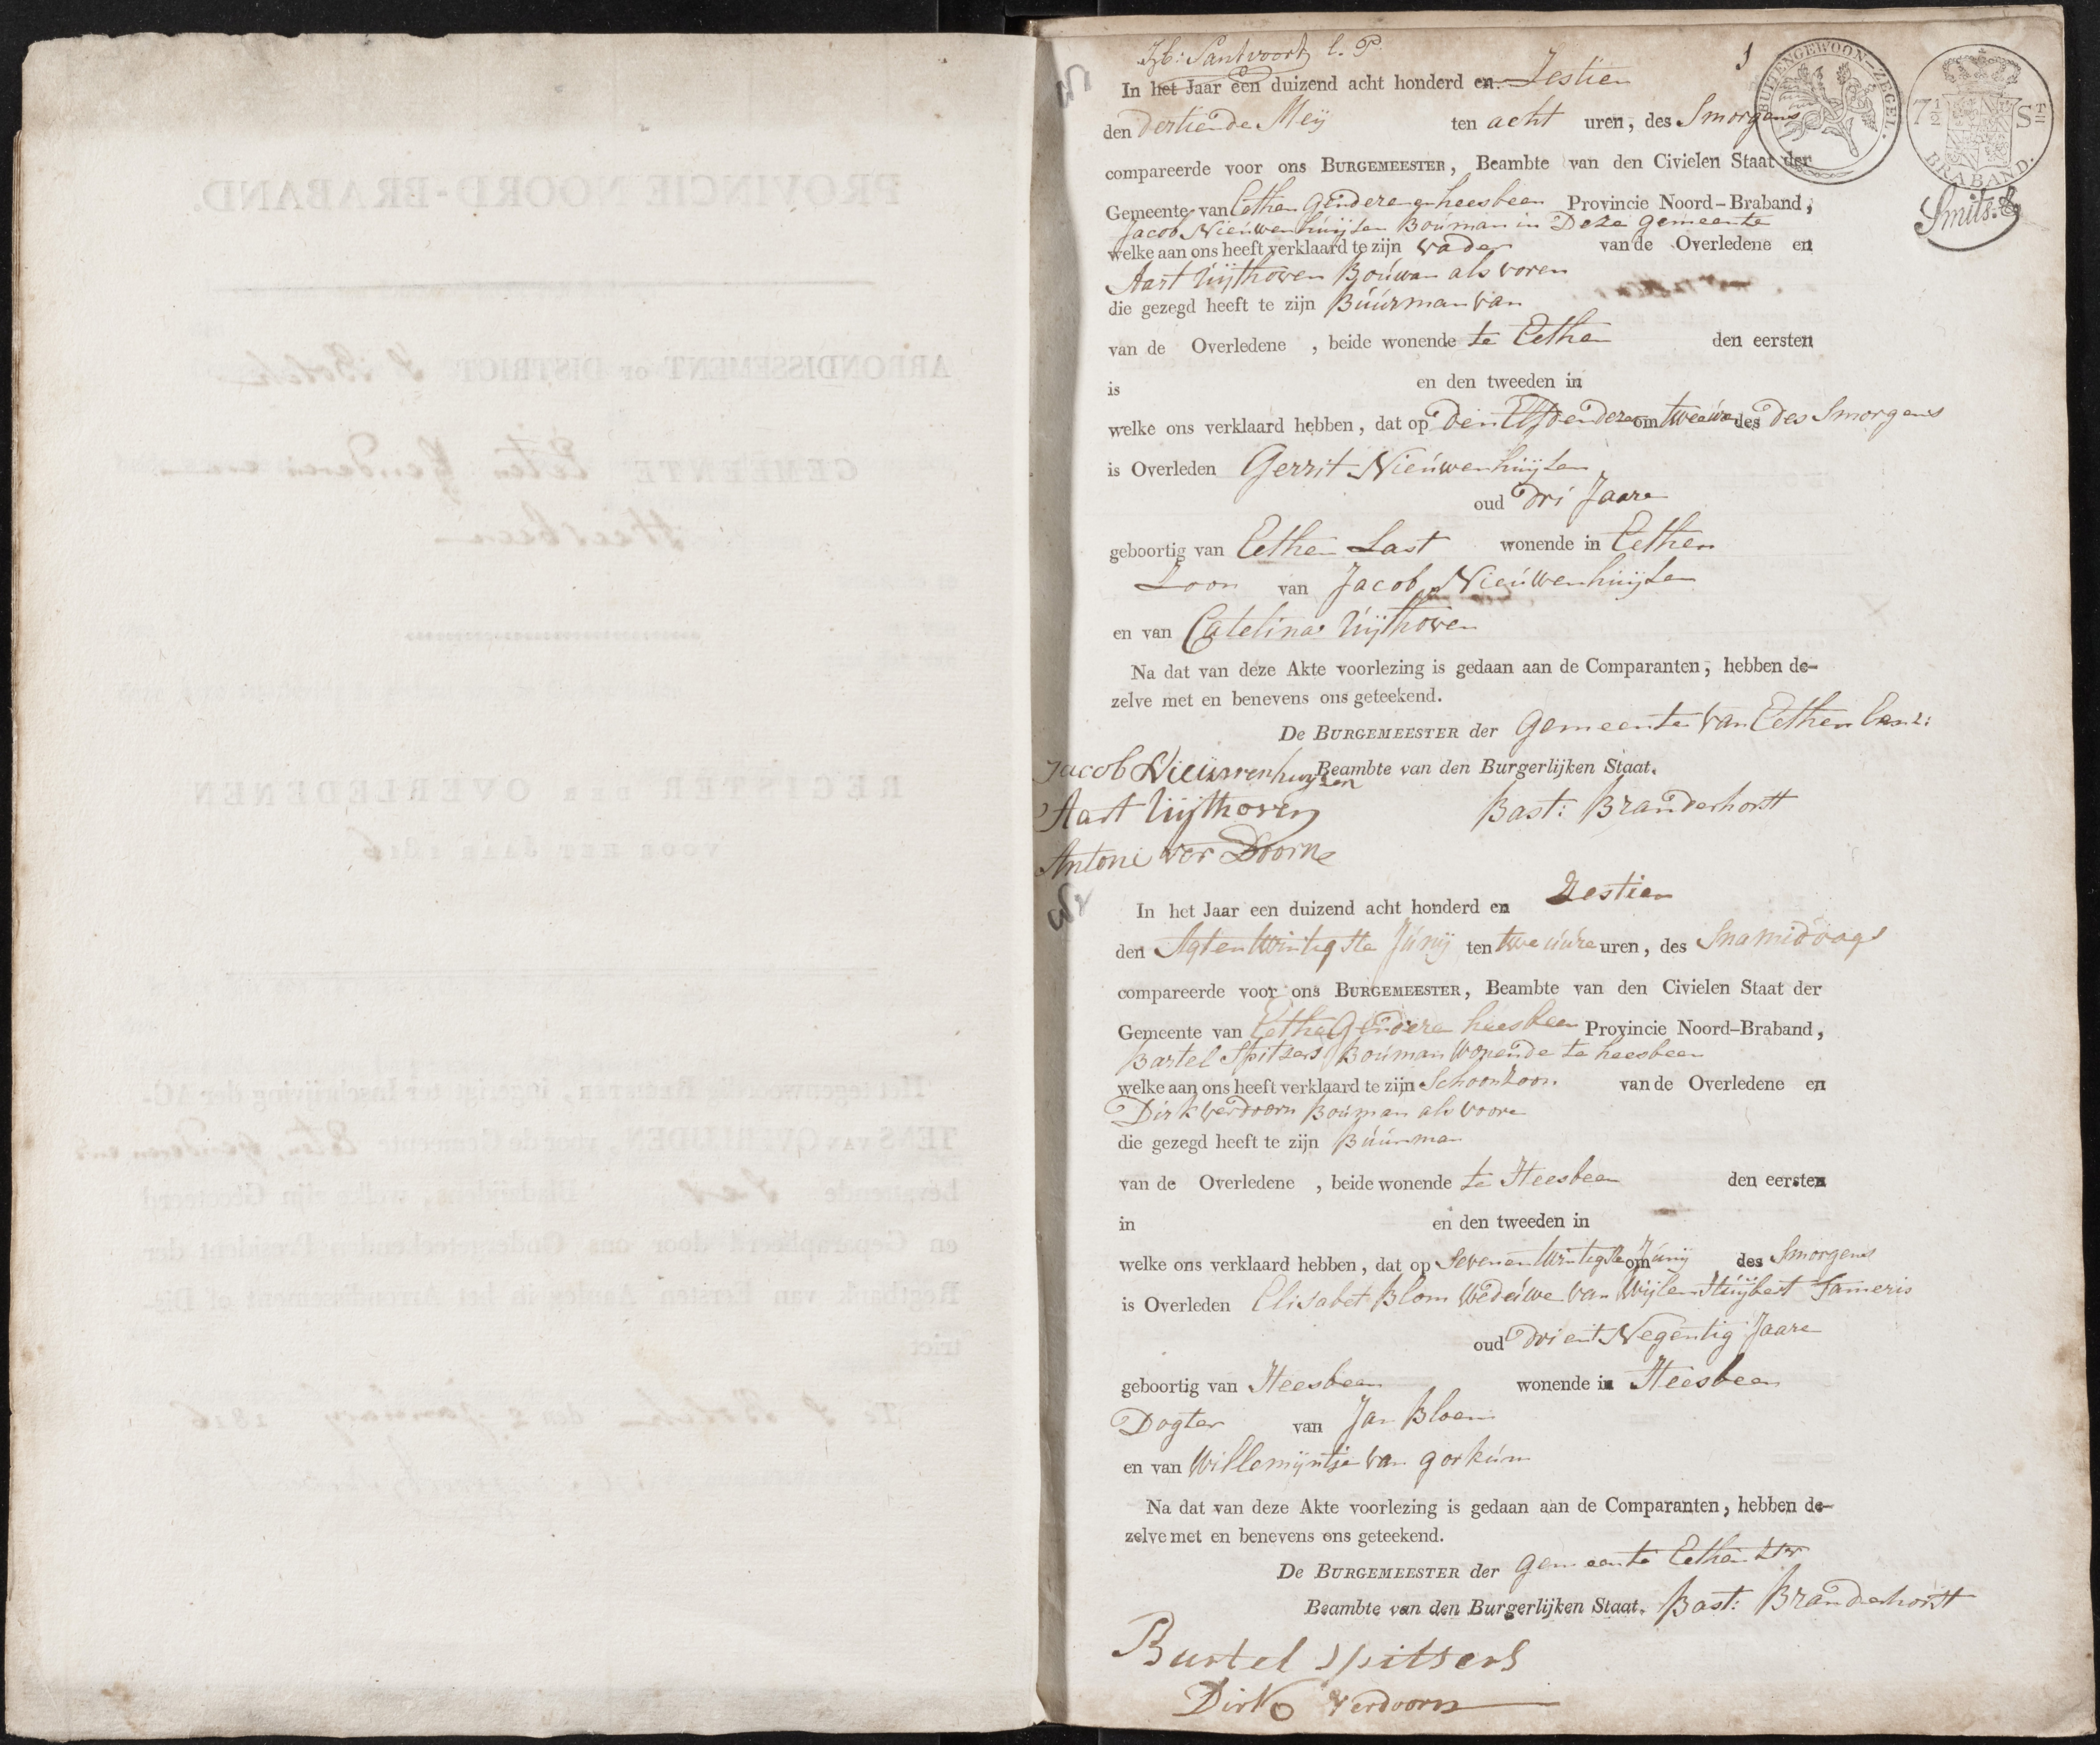 Santvoort l. P.
1
BUITENGEWOON-ZEGEL.
7½ ST
BRABAND.
Smits.
In het Jaar een duizend acht honderd en Zestien
den dertiende Meij ten acht uren, des Smorgens
compareerde voor ons BURGEMEESTER, Beambte van den Civielen Staat der
Gemeente van Eethen Genderen heesbeen Provincie Noord-Braband,
Jacob Nieúwenhúijsen Boúman in Deze gemeente
welke aan ons heeft verklaard te zijn vader van de Overledene en
Aart Uijthoven Boúman als voren
die gezegd heeft te zijn Búúrman van
van de Overledene , beide wonende te Eethen den eersten
is en den tweeden in
welke ons verklaard hebben, dat op den Elfden dezer om twee ure des des Smorgens
is Overleden Gerrit Nieúwenhúijsen
oud dri Jaare
geboortig van Eethen Last wonende in Eethen
Zoon van Jacob Nieúwenhúijsen
en van Catelina Uijthoven
Na dat van deze Akte voorlezing is gedaan aan de Comparanten, hebben de-
zelve met en benevens ons geteekend.
De BURGEMEESTER der Gemeente van Eethen
Beambte van den Burgerlijken Staat.
Jacob Nieuwenhuysen
Aart Uijthoven
Bast: Branderhorst
Antoni ver Doorne
In het Jaar een duizend acht honderd en Zestien
den Agtentwintigste Júnij ten twe úúre uren, des Snamiddags
compareerde voor ons BURGEMEESTER, Beambte van den Civielen Staat der
Gemeente van Eethe Genderen heesbeen Provincie Noord-Braband,
Bartel Spitsers Boúman Wonende te heesbeen
welke aan ons heeft verklaard te zijn Schoonzoon van de Overledene en
Dirk verdoorn Boúman als voore
die gezegd heeft te zijn Búúrman
van de Overledene , beide wonende te Heesbeen den eersten
in en den tweeden in
welke ons verklaard hebben, dat op Sevenentwintigste om Júnij des Smorgens
is Overleden Elisabet Blom Wedúwe van Wijlen Húijbert Tameris
oud Dri ent Negentig Jaare
geboortig van Heesbeen wonende in Heesbeen
Dogter van Jan Bloem
en van Willemijntje van gorkúm
Na dat van deze Akte voorlezing is gedaan aan de Comparanten, hebben de-
zelve met en benevens ons geteekend.
De BURGEMEESTER der gemeente Eethen
Beambte van den Burgerlijken Staat. Bast: Branderhorst
Bartel Spitsers
Dirk Verdoorn